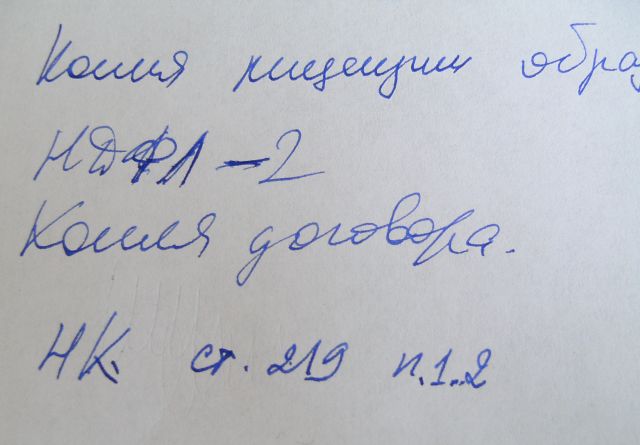 Копия лицензии обра
НДФЛ-2
Копия договора.
НК. ст. 219 п.1.2